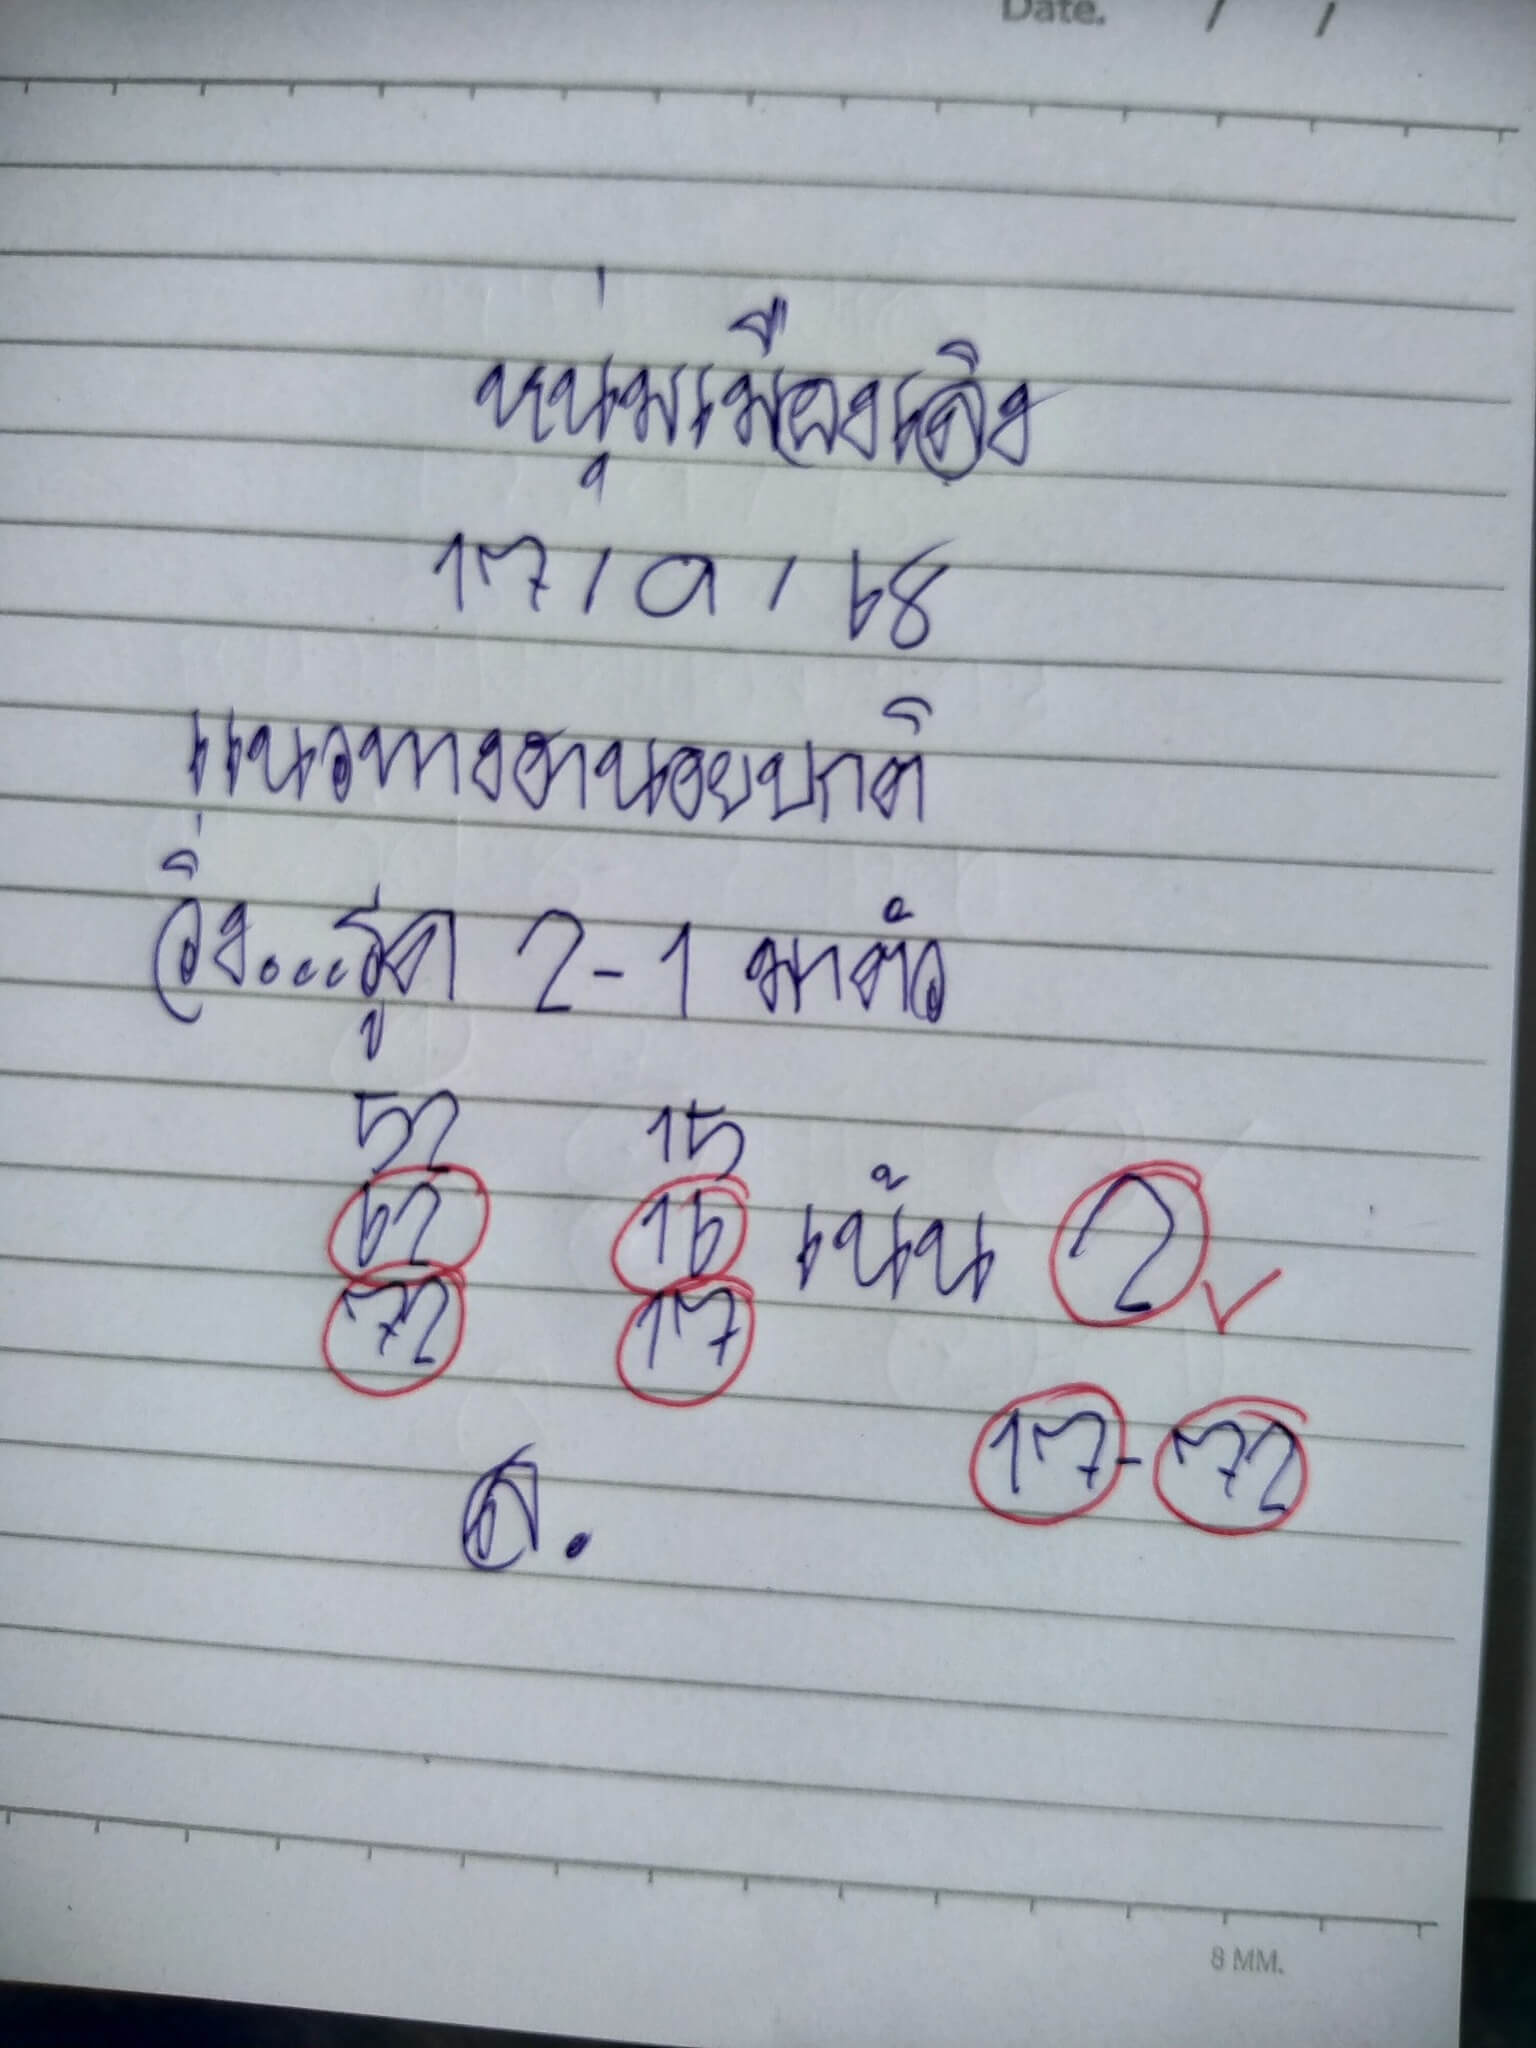 Date. / /
หนุ่มเมืองเลิง
17/9/68
แนวทางฮานอยปกติ
วิ่ง...รูด 2-1 มาตัว
52 15
62 16 เน้น 2
72 17
17-72
ส.
8 MM.